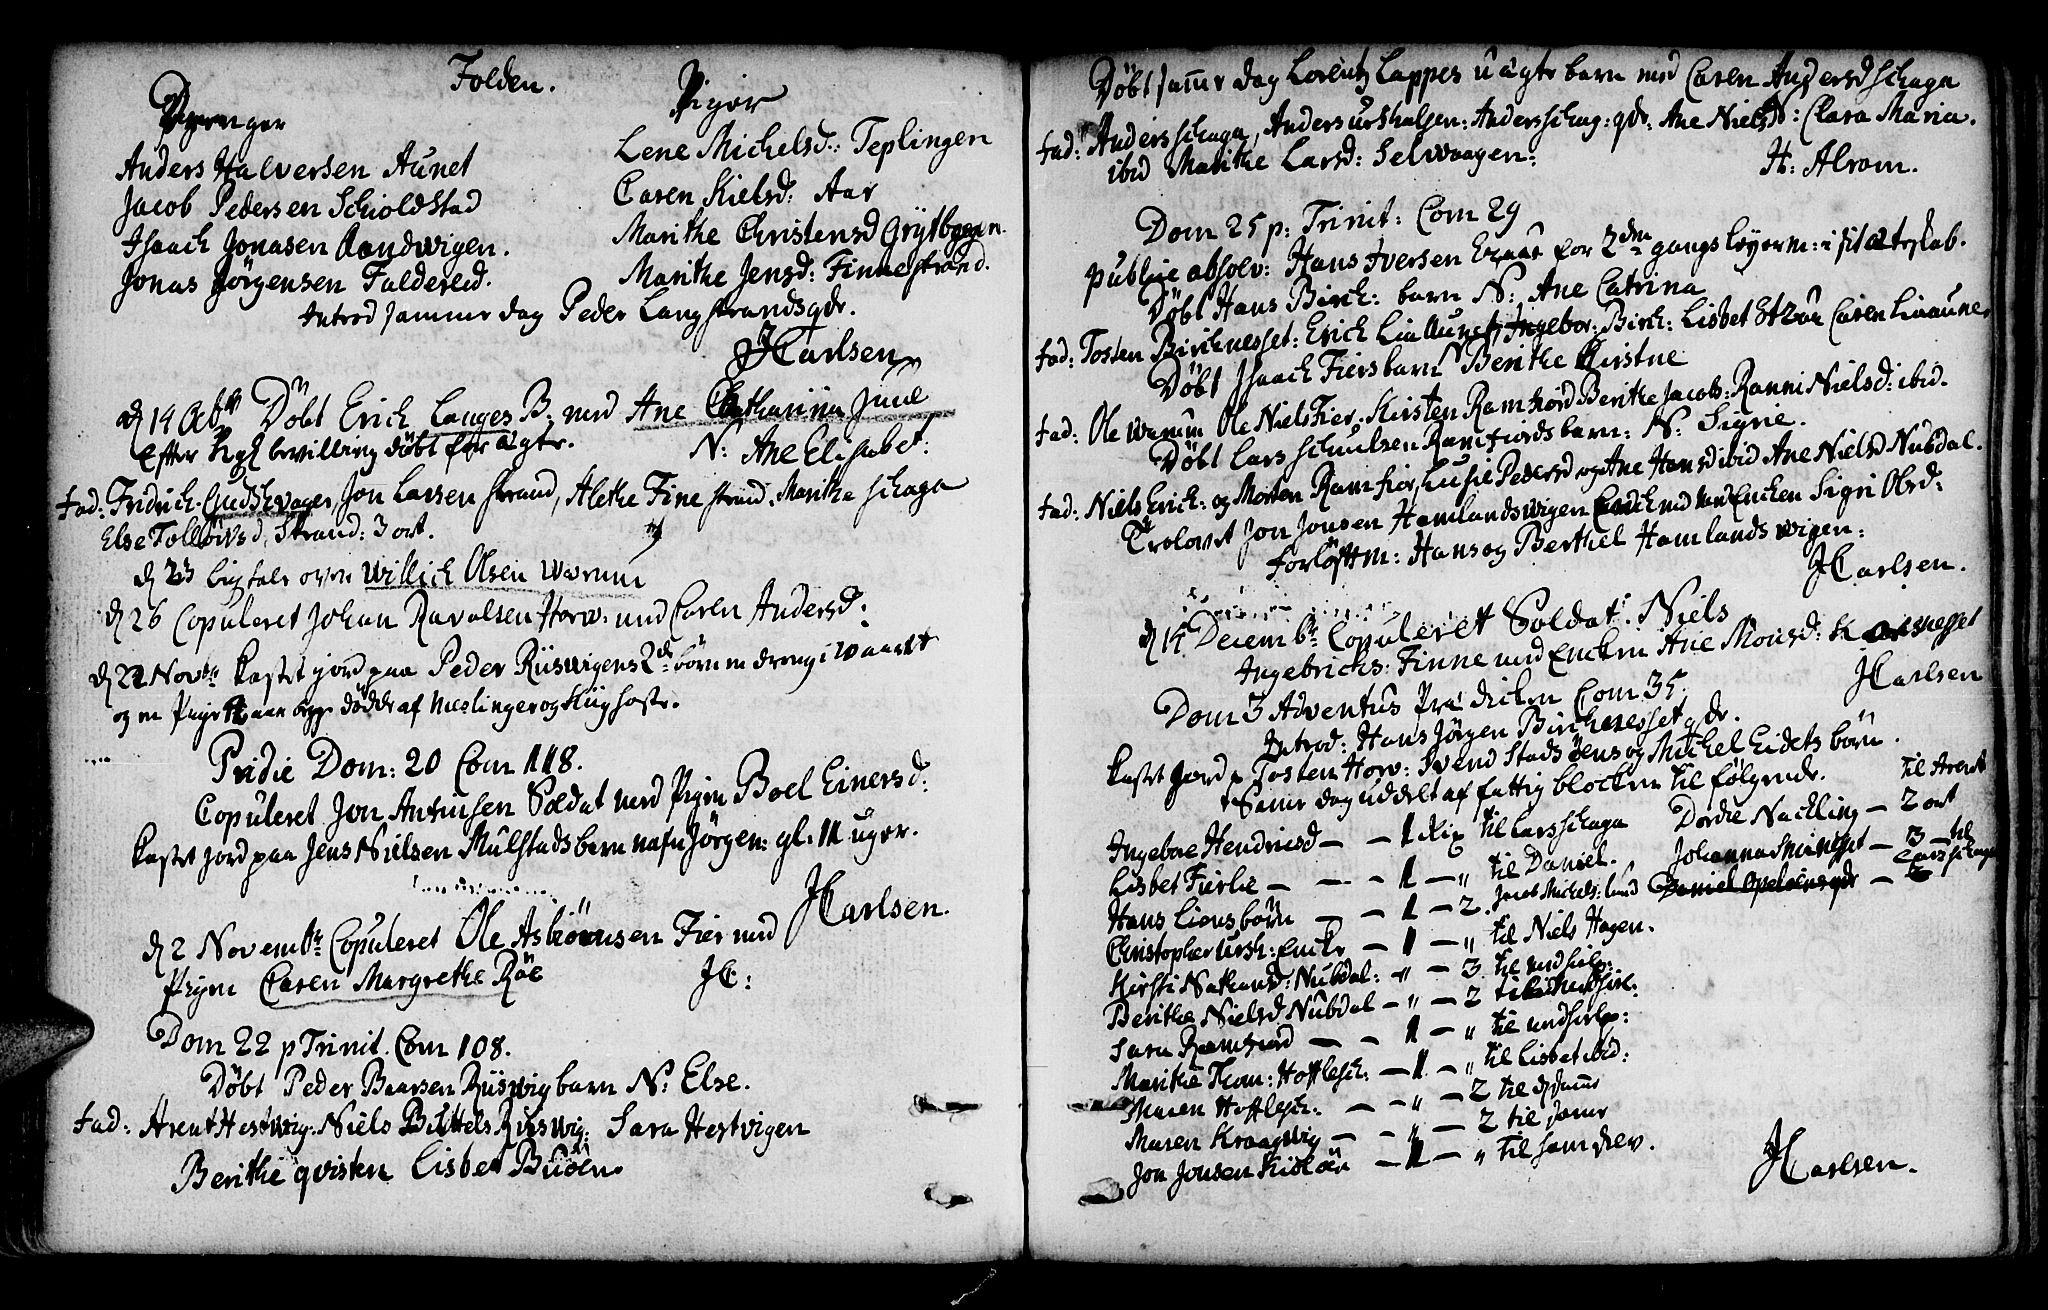 Folden.
Drenger
Piger
Anders Halversen Aunet
Jacob Pedersen Schioldstad
Isaach Jonasen Aandwigen.
Jonas Jørgensen Faldereid.
Lene Michelsd: Teplingen
Caren Kielsd: Aar
Marithe Christensd Grÿtbogen.
Marithe Jensd: Finnestrand.
Introd samme dag Peder Langstrands qdr.
HCarlsen
d 14 Octbr Døbt Erich Langes B: med Ane Chatharina Juul
Efter Kgl bevilling døbt for ægte.
N: Ane Elisabet:
fad: Fridrich Gudshvager, Jon Larsen strand, Alethe Finestrand: Marithe schaga
Else Tollöivsd, Strand: 3 ort.
d 23 Ligtale over Willich Olsen Wærum
d 26 Copuleret Johan Ravalsen Horv: med Caren Andersd:
d 22 Novbr kastet jord paa Peder Riiswigens 2de børn en dreng i waaret
og en Pige aar begge døde af Meslinger og Kighoste.
Pridie Dom: 20 Com 118.
Copuleret Jon Antensen Soldat med Pigen Boel Einersd:
kastet jord paa Jens Nielsen Mulstads barn nafn Jørgen: gl: 11 uger.
HCarlsen.
d 2 Novembr Copuleret Ole Asbiörnsen Fier med
Pigen Caren Margrethe Röe
HC:
Dom 22 p Trinit. Com 108.
Døbt Peder Baarsen Riiswig barn N: Else.
fad: Arent Hestwig: Niels Bertels Riiswig: Sara Hestvigen
Berithe qvisten Lisbet Buöen
Døbt samme dag Lorentz Lappes uægte barn med Caren Andersd schaga
fad: Anders schaga, Anders urshalsen: Anders schag: qdr: Ane Nielsd: Clara Maria.
ibid Marithe Larsd: Selwaagen:
H: Alrom.
Dom 25 p: Trinit: Com 29
publice absolv: Hans Iversen for 2den gangs leyerm: i sit ægteskab.
Døbt Hans Birch: barn N: Ane Catrina
fad: Tosten Birchnesset: Erich Liaunet, Ingebor: Birch: Lisbet Caren Liaunet
Døbt Isaach Fiers barn N Berithe Kirstne
fad: Ole Wærum Ole Niels Fier, Kirsten Ramfiord Berithe Jacobs: Ranni Nielsd: ibid.
Døbt Lars schuulsen Ramfiords barn: N: Signe.
fad: Niels Erich: og Morten Ramfior, Lusie Pedersd og Ane Hansd ibid Ane Nielsd Nubdal.
Trolovet Jon Jonsen Hamlandswigen med Encken Sigri Olsd:
Forløftm: Hans og Berthel Hamlandswigen:
HCarlsen.
d 14 Decembr Copuleret Soldat: Niels
Ingebrichs: Finne med Encken Ane Monsd:
HCarlsen
Dom 3 Adventus Prædicken Com 35.
Introd: Hans Jörgen Birchenesset qdr.
kastet Jord p Tosten Horv: Svend Stadsöens og Michel Eidets börn.
Samme dag uddelt af fattig blocken til følgende.
Ingebor Hendricsd — — 1 Rix til Lars schaga
Lisbet Fierlie — — 1 — " til Daniel.
Hans Liens börn — — 1 — 2. Jacob Michels: lund
Christopher ursh: encke — 1 — " til Niels Hagen.
Kirsti Nathansd: Nubdal: " — 3 til
Berithe Nielsd Nubdal — " — 2 til
Sara Ramfiord — — 1 — " til
Marithe Thom: Hofflesch: — 1 — " til Lisbet ibid:
Maren Hofflesch: — — " — 2 til
Maren Kraagwig — — " — 2 til samme
Jon Jonsen Kislöen — 1 — " til ham slev.
Dordie Nachling — 2 ort til Arent
Johanna — 3 — til Lars schaga
HCarlsen.